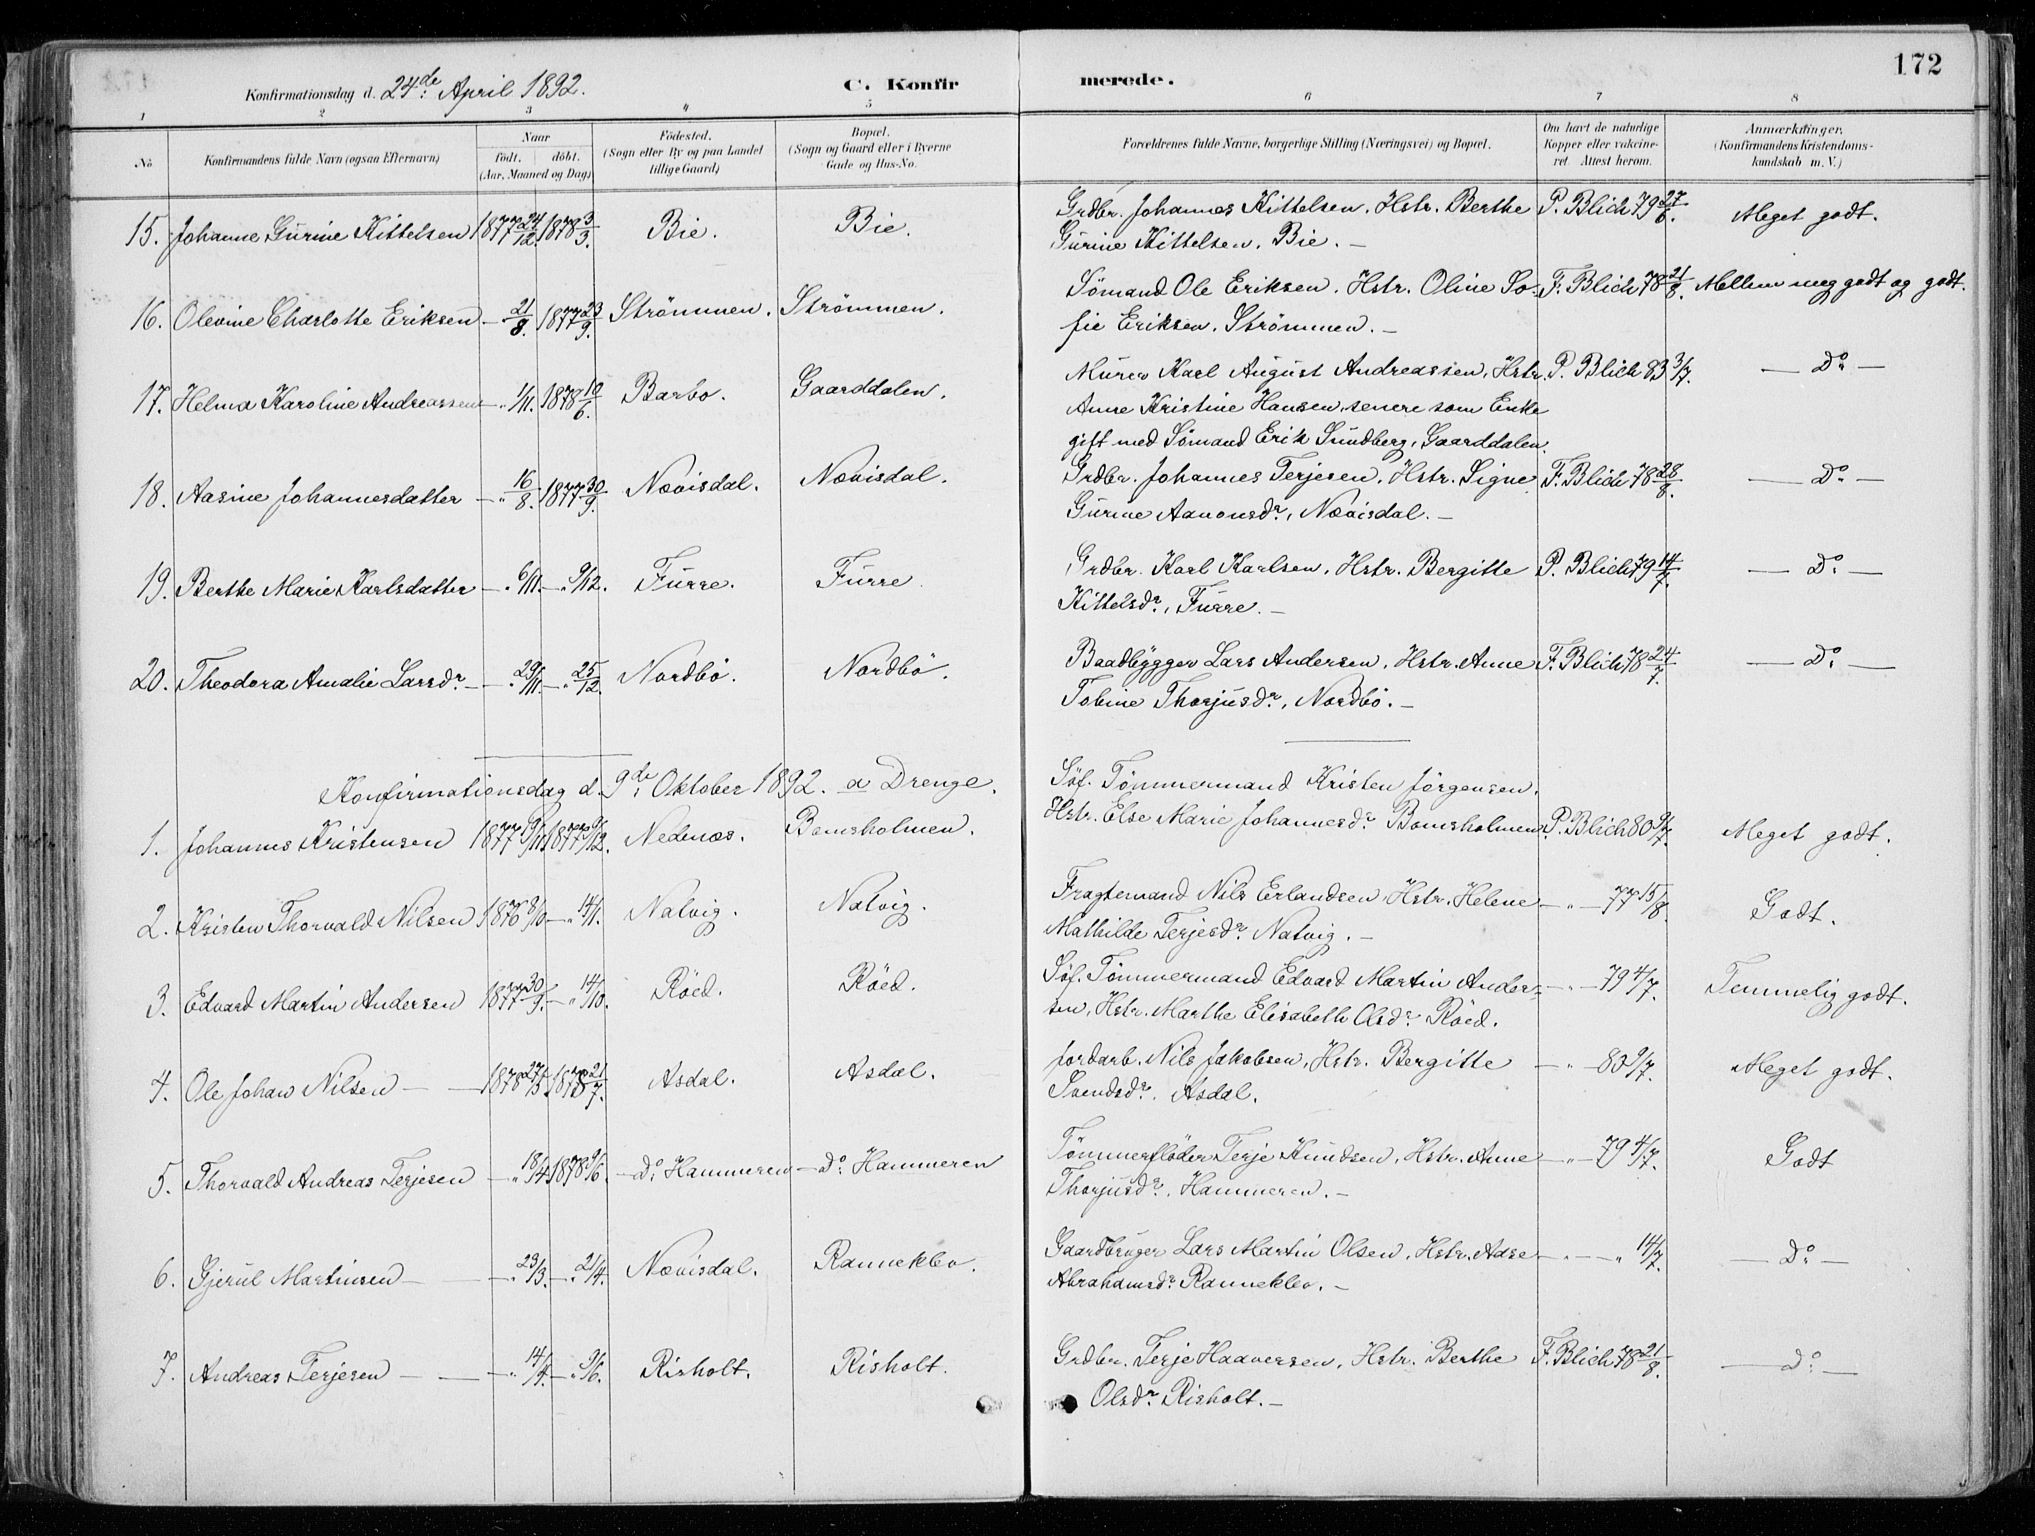 172
Konfirmationsdag d. 24de April 1892.
C. Konfirmerede.
1 2 3 4 5 6 7 8
No
Konfirmandens fulde Navn (ogsaa Efternavn)
Naar
födt. döbt.
(Aar, Maaned og Dag)
Födested.
(Sogn eller By og paa Landet
tillige Gaard)
Bopæl.
(Sogn og Gaard eller i Byerne
Gade og Hus-No.
Forældrenes fulde Navne, borgerlige Stilling (Næringsvei) og Bopæl.
Om havt de naturlige
Kopper eller vakcine-
ret. Attest herom.
Anmærkninger,
(Konfirmandens Kristendoms-
kundskab m. V.)
15. Johanne Gurine Kittelsen 1877 24/12. 1878 3/3. Bie. Bie. Grdbr. Johannes Kittelsen. Hstr. Berthe P. Blich 79 27/6. Meget godt.
Gurine Kittelsen, Bie. –
16. Olevine Charlotte Eriksen – 21/8. 1877 23/9. Strömmen. Strömmen. Sömand Ole Eriksen. Hstr. Oline So- F. Blich 78 21/8. Mellem meg godt og godt.
fie Eriksen. Strömmen. –
17. Helma Karoline Andreassen – " 1/11. 1878 10/6. Barbo. Gaarddalen. Murer Karl August Andreassen, Hstr. P. Blich 83 3/7. – Do –
Anne Kristine Hansen, senere som Enke
gift med Sömand Erik Sundberg, Gaarddalen.
18. Aasine Johannesdatter – " 16/8. 1877 30/9. Nævisdal. Nævisdal. Grdbr. Johannes Terjesen. Hstr. Signe F. Blich 78 28/8. – Do –
Gurine Aanonsdr., Nævisdal. –
19. Berthe Marie Karlsdatter – " 6/11. – " 9/12. Furre. Furre. Grdbr. Karl Karlsen. Hstr. Bergitte P. Blich 79 14/7. – Do –
Kittelsdr., Furre. –
20. Theodora Amalie Larsdr. – – " 29/11. – " 25/12. Nordbö. Nordbö. Baadbygger Lars Andersen, Hstr. Anne F. Blich 78 24/7. – Do –
Tobine Thorjusdr., Nordbö. –
Konfirmationsdag d. 9de Oktober 1892. a Drenge.
1. Johannes Kristensen 1877 19/11. 1877 9/12. Nedenæs. Bomsholmen. Söf. Tömmermand Kristen Jörgensen.
Hstr. Else Marie Johannesdr. Bomsholmen. P. Blich 80 9/7. Meget godt.
2. Kristen Thorvald Nilsen 1876 8/10 – " 14/1. Natvig. Natvig. Fragtemand Nils Erlandsen Hstr. Helene – " – 77 15/8. Godt.
Mathilde Terjesdr. Natvig. –
3. Edvard Martin Andersen 1877 30/9. – " 14/10. Röed. Röed. Söf. Tömmermand Edvard Martin Ander- – " – 79 4/7. Temmelig godt.
sen, Hstr. Marthe Elisabeth Olsdr. Röed.
4. Ole Johan Nilsen – – 1878 27/5. 1878 21/7. Asdal. Asdal. Jordarb. Nils Jakobsen, Hstr. Bergitte – " – 83 9/7. Meget godt.
Svendsdr. Asdal.
5. Thorvald Andreas Terjesen – " 18/4. 1878 9/6. – Do. Hammeren – Do. Hammeren Tömmerflöder Terje Knudsen, Hstr. Anne – " – 79 4/7. Godt
Thorjusdr., Hammeren. –
6. Gjerul Martinsen – – " 23/3. – " 21/4. Nævisdal. Ranneklev. Gaardbruger Lars Martin Olsen. Hstr. Aase – " – " 14/7. – Do –
Abrahamsdr. Ranneklev. –
7. Andreas Terjesen – – – " 14/4. – " 9/6. Risholt. Risholt. Grdbr. Terje Haaversen. Hstr. Berthe F. Blich 78 21/8. – Do –
Olsdr. Risholt. –